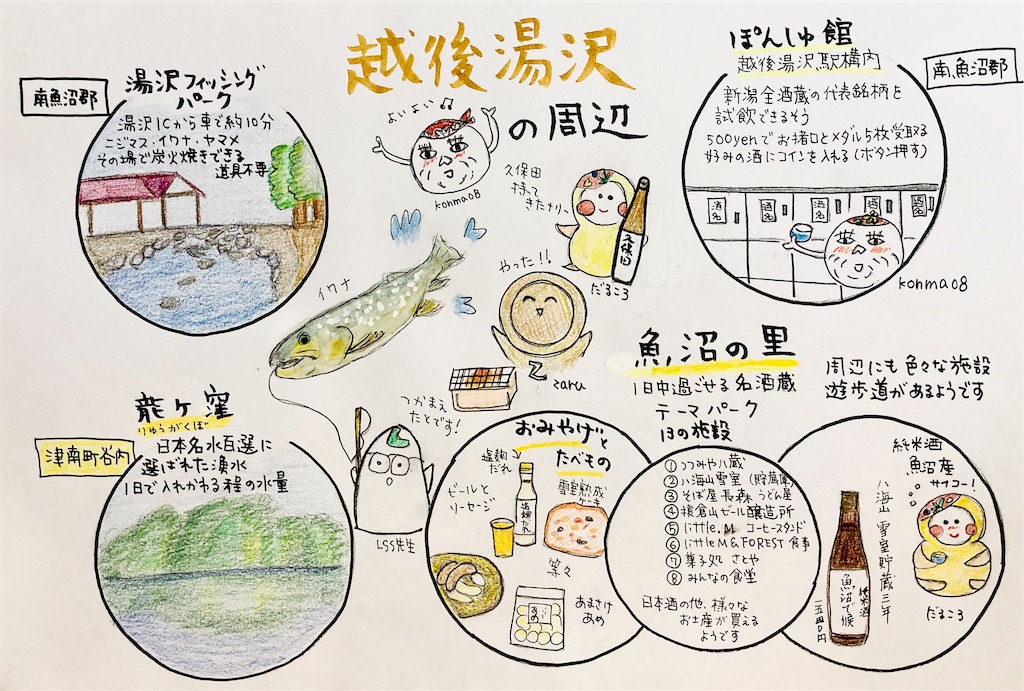 越後湯沢
の周辺
南魚沼郡
湯沢フィッシング
パーク
湯沢ICから車で約10分
ニジマス・イワナ・ヤマメ
その場で炭火焼きできる
道具不要
よいよい♫
konma08
久保田
持って
きたナリー
久保田
だるころ
ぽんしゅ館
越後湯沢駅構内
南魚沼郡
新潟全酒蔵の代表銘柄を
試飲できるそう
500yenでお猪口とメダル5枚受取る
好みの酒にコインを入れる(ボタン押す)
酒名
酒名
酒名
酒名
酒名
konma08
イワナ
やった!!
zaru
つかまえ
たとです!
LSS先生
龍ヶ窪
りゅうがくぼ
津南町谷内
日本名水百選に
選ばれた湧水
1日で入れかわる程の水量
魚沼の里
1日中過ごせる名酒蔵
テーマパーク
13の施設
周辺にも色々な施設
遊歩道があるようです
おみやげと
たべもの
塩麹
だれ
塩麹だれ
ビールと
ソーセージ
雪室熟成
ケーキ
等々
あまさけ
あめ
①つつみや八蔵
②八海山雪室(貯蔵庫)
③そば屋長森 うどん屋
④猿倉山ビール醸造所
⑤little.M コーヒースタンド
⑥little M&FOREST 食事
⑦菓子処 さとや
⑧みんなの食堂
日本酒の他、様々な
お土産が買える
ようです
純米酒
魚沼産
サケコー!
八海山 雪室貯蔵三年
純米酒
魚沼で候
だるころ